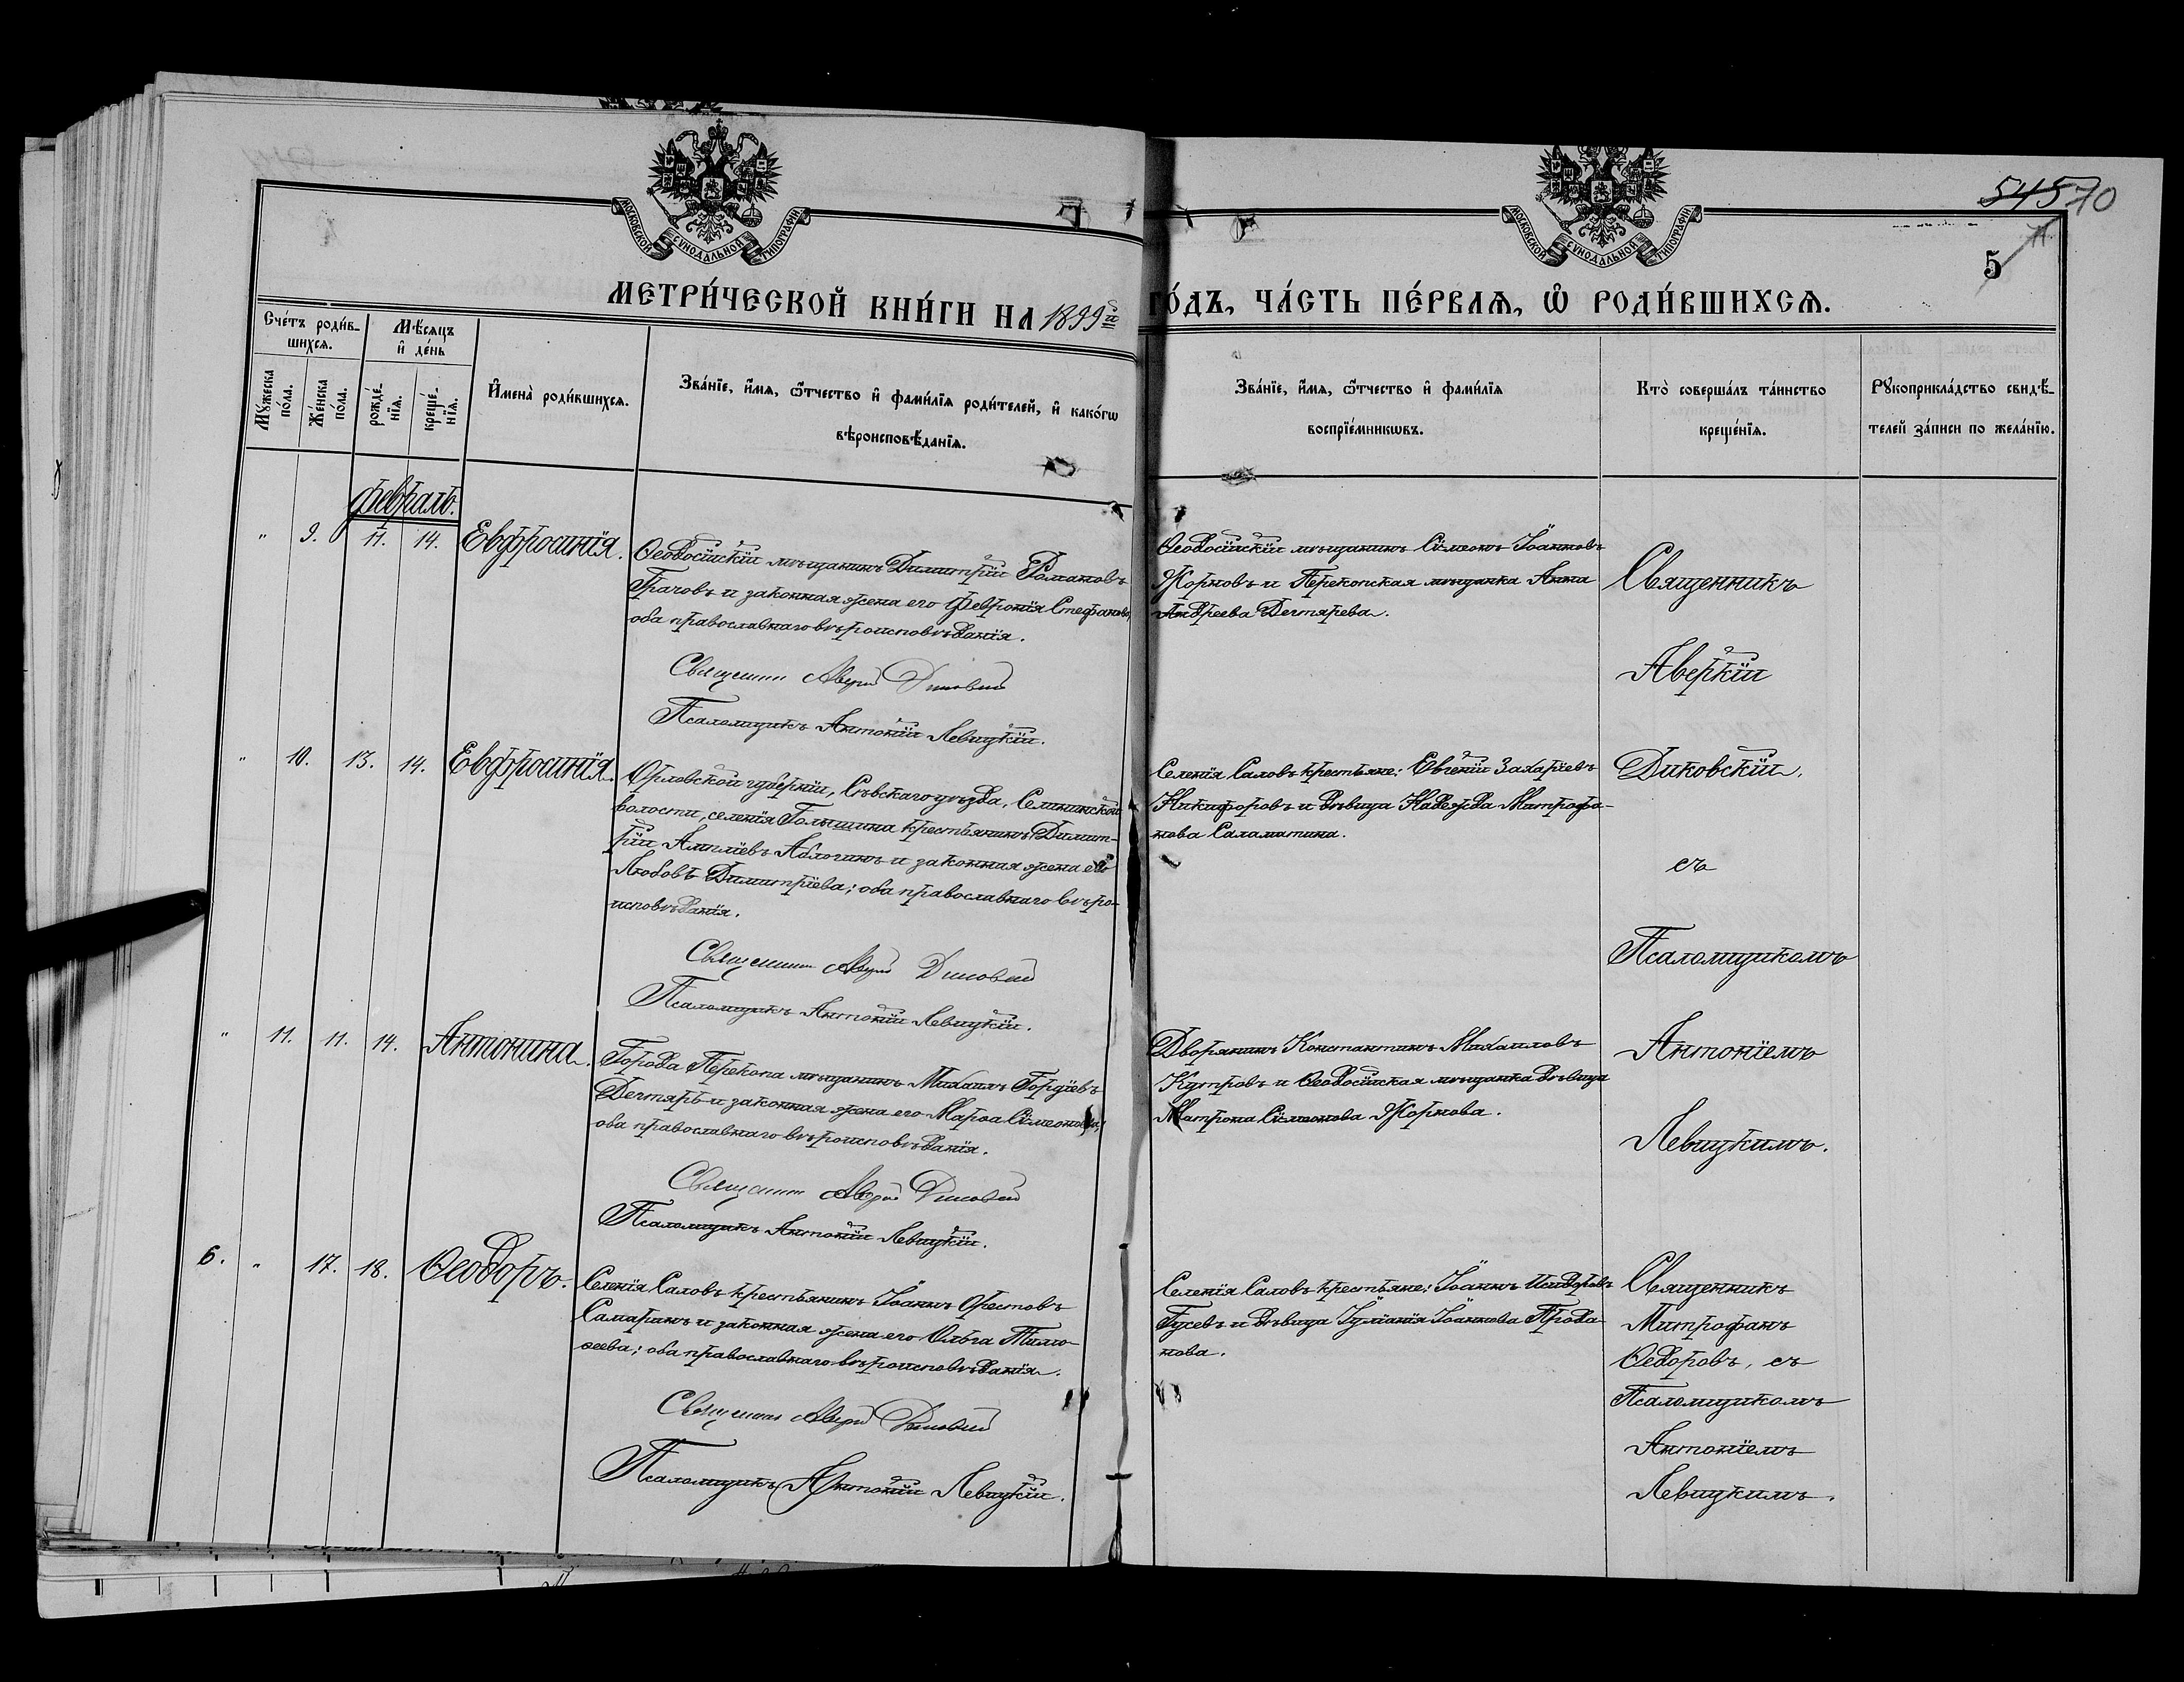 МОСКОВСКОЙ СѴНОДАЛЬНОЙ ТИПОГРАФІИ
МОСКОВСКОЙ СѴНОДАЛЬНОЙ ТИПОГРАФІИ
545 70
71.
5
МЕТРИ́ЧЕСКОЙ КНИ́ГИ НА 1899й ГО́ДЪ, ЧА́СТЬ ПЕ́РВАѦ, Ѡ҆ РОДИ́ВШИХСѦ.
Сче́тъ роди́в-
шихсѧ.
Мѣ́сѧцъ
и҆ де́нь
Мꙋ́жеска
по́ла.
Же́нска
по́ла.
рожде́-
нїѧ.
креще́-
нїѧ.
И҆мена̀ роди́вшихсѧ.
Зва́нїе, и҆́мѧ, ѻ҆́тчество и҆ фами́лїѧ роди́телей, и҆ како́гѡ
вѣроисповѣ́данїѧ.
Зва́нїе, и҆́мѧ, ѻ҆́тчество и҆ фами́лїѧ
воспрїе́мникѡвъ.
Кто̀ соверша́лъ та́инство
креще́нїѧ.
Рꙋкоприкла́дство свидѣ́-
телей за́писи по жела́нїю.
Февраль.
" 9. 11. 14. Евфросинія.
Ѳеодосійскій мѣщанинъ Димитрій Романовъ
Грачовъ и законная жена его Феvронія Стефанова,
оба православнаго вѣроисповѣданія.
Священникъ Аверкій Диковскій
Псаломщикъ Антоній Левицкій.
Ѳеодосійскій мѣщанинъ Сѵмеонъ Іоанновъ
Жорновъ и Перекопская мѣщанка Анна
Андреева Дегтярева.
Священникъ
Аверкій
" 10. 13. 14. Евфросинія.
Орловской губерніи, Сѣвскаго уѣзда, Селинской
волости, селенія Голышина крестьянинъ Димит-
рій Амплиевъ Аблогинъ и законная жена его
Любовь Димитріева; оба православнаго вѣро-
исповѣданія.
Священникъ Аверкій Диковскій
Псаломщикъ Антоній Левицкій.
Селенія Саловъ крестьяне: Евгеній Захаріевъ
Никифоровъ и дѣвица Надежда Митрофа-
нова Саламатина.
Диковскій,
съ
Псаломщикомъ
" 11. 11. 14. Антонина.
Города Перекопа мѣщанинъ Михаилъ Гордіевъ
Дегтярь и законная жена его Марѳа Сѵмеонова;
оба православнаго вѣроисповѣданія.
Священникъ Аверкій Диковскій
Псаломщикъ Антоній Левицкій.
Дворянинъ Константинъ Михаиловъ
Кутровъ и Ѳеодосійская мѣщанка дѣвица
Матрона Сѵмеонова Жорнова.
Антоніемъ
Левицкимъ.
6. " 17. 18. Ѳеодоръ.
Селенія Саловъ крестьянинъ Іоаннъ Орестовъ
Самаринъ и законная жена его Ольга Тимо-
ѳеева; оба православнаго вѣроисповѣданія.
Священникъ Аверкій Диковскій
Псаломщикъ Антоній Левицкій.
Селенія Саловъ крестьяне: Іоаннъ Исидоровъ
Гусевъ и дѣвица Іуліанія Іоаннова Прода-
нова.
Священникъ
Митрофанъ
Ѳедоровъ, съ
Псаломщикомъ
Антоніемъ
Левицкимъ.